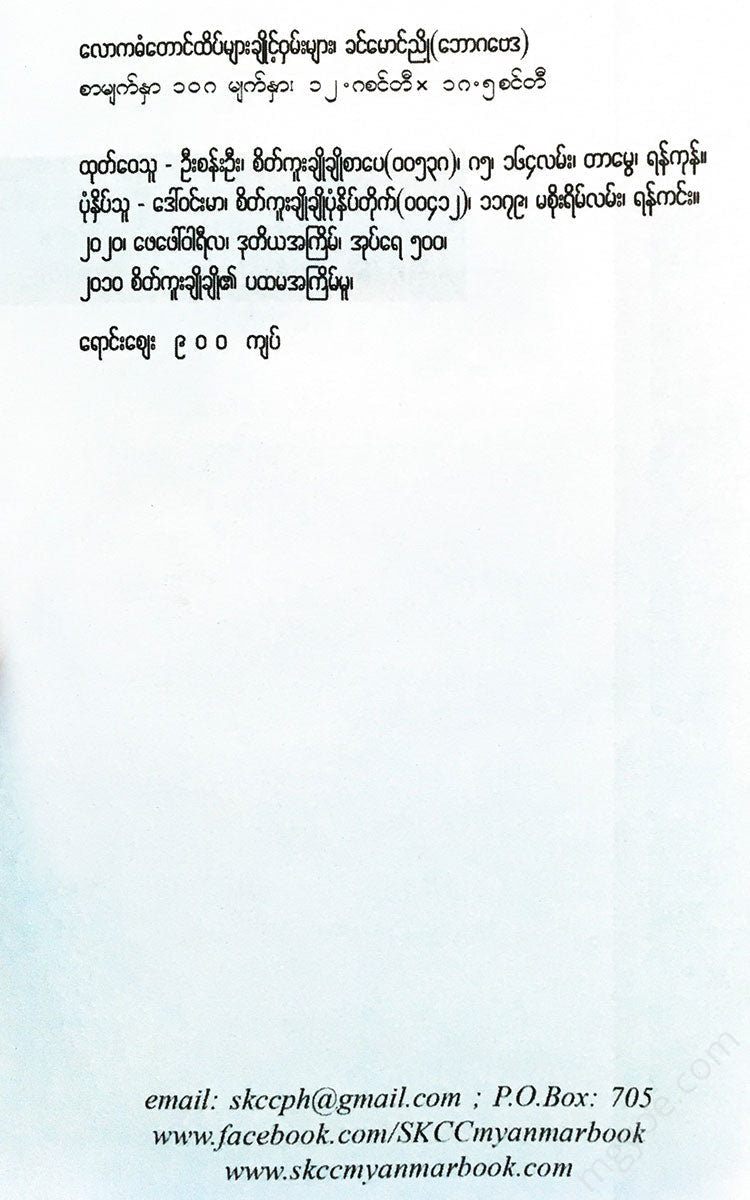 လောကဓံတောင်ထိပ်များချိုင့်ဝှမ်းများ၊ ခင်မောင်ညို(ဘောဂဗေဒ)
စာမျက်နှာ ၁၀ဂ မျက်နှား၊ ၁၂.ဂစင်တီ× ၁ဂ.၅စင်တီ
ထုတ်ဝေသူ - ဦးစန်းဦး၊ စိတ်ကူးချိုချိုစာပေ(၀၀၅၃ဂ)၊ ဂ၅၊ ၁၆၄လမ်း၊ တာမွေ၊ ရန်ကုန်။
ပုံနှိပ်သူ - ဒေါ်ဝင်းမာ၊ စိတ်ကူးချိုချိုပုံနှိပ်တိုက်(၀၀၄၁၂)၊ ၁၁၇၉၊ မစိုးရိမ်လမ်း၊ ရန်ကင်း။
၂၀၂၀၊ ဖေဖေါ်ဝါရီလ၊ ဒုတိယအကြိမ်၊ အုပ်ရေ ၅၀၀၊
၂၀၁၀ စိတ်ကူးချိုချို၏ ပထမအကြိမ်မူ၊
ရောင်းဈေး ၉ ၀ ၀ ကျပ်
email: skccph@gmail.com ; P.O.Box: 705
www.facebook.com/SKCCmyanmarbook
www.skccmyanmarbook.com